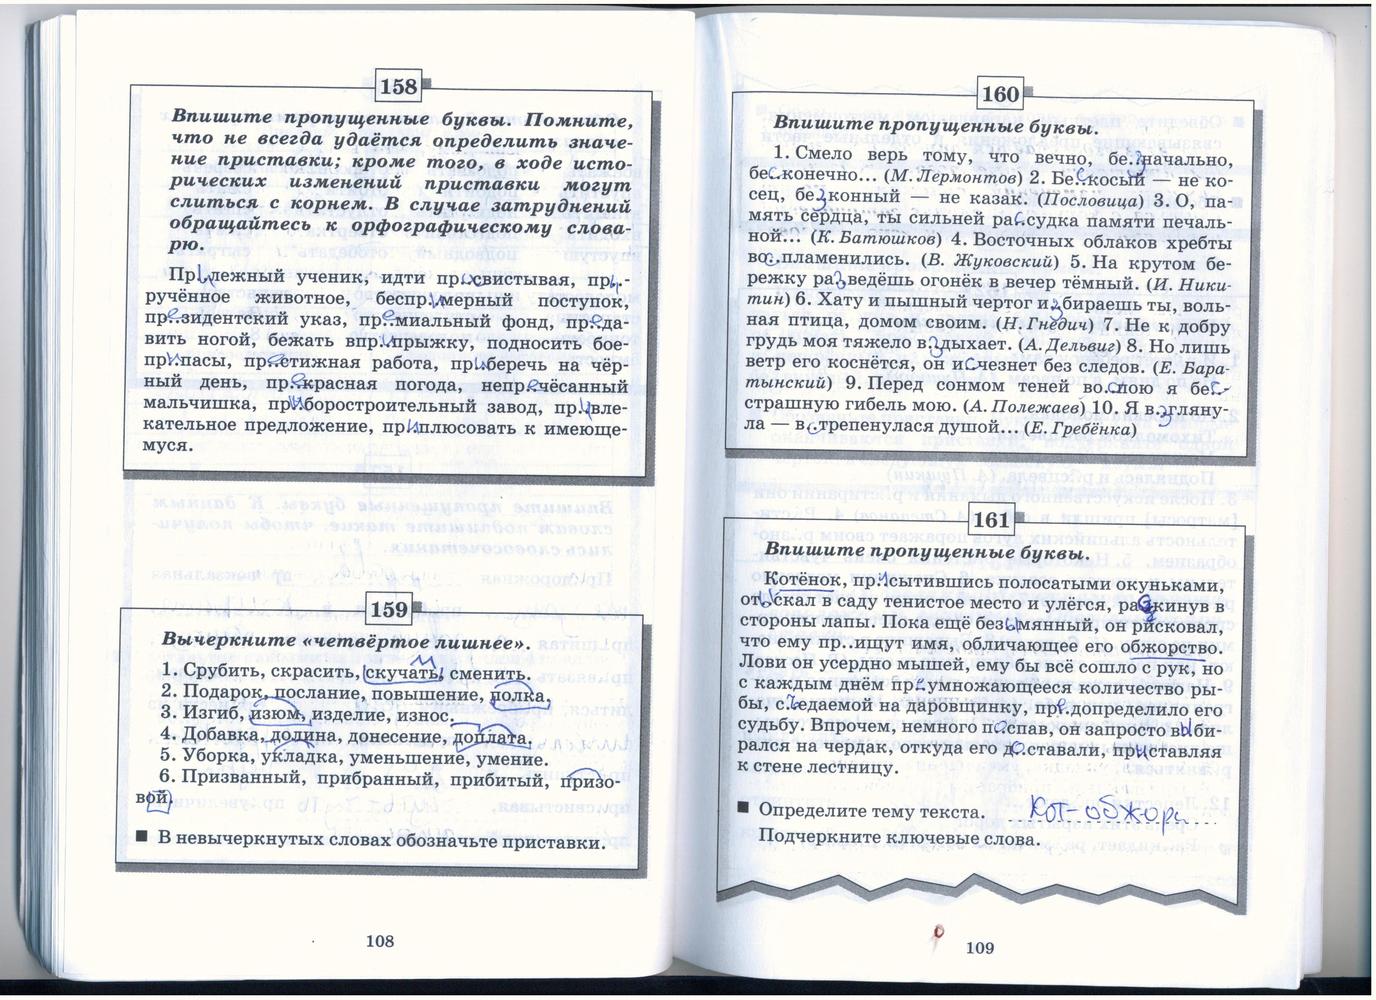 158
Впишите пропущенные буквы. Помните,
что не всегда удаётся определить значе-
ние приставки; кроме того, в ходе исто-
рических изменений приставки могут
слиться с корнем. В случае затруднений
обращайтесь к орфографическому слова-
рю.
Прилежный ученик, идти присвистывая, при-
ручённое животное, беспримерный поступок,
президентский указ, премиальный фонд, преда-
вить ногой, бежать вприпрыжку, подносить бое-
припасы, престижная работа, приберечь на чёр-
ный день, прекрасная погода, непричёсанный
мальчишка, приборостроительный завод, привле-
кательное предложение, приплюсовать к имеюще-
муся.
159
Вычеркните «четвёртое лишнее».
1. Срубить, скрасить, скучать, сменить.
2. Подарок, послание, повышение, полка.
3. Изгиб, изюм, изделие, износ.
4. Добавка, долина, донесение, доплата.
5. Уборка, укладка, уменьшение, умение.
6. Призванный, прибранный, прибитый, призо-
вой.
■ В невычеркнутых словах обозначьте приставки.
108
160
Впишите пропущенные буквы.
1. Смело верь тому, что вечно, безначально,
бесконечно... (М. Лермонтов) 2. Бескосый — не ко-
сец, безконный — не казак. (Пословица) 3. О, па-
мять сердца, ты сильней рассудка памяти печаль-
ной... (К. Батюшков) 4. Восточных облаков хребты
воспламенились. (В. Жуковский) 5. На крутом бе-
режку разведёшь огонёк в вечер тёмный. (И. Ники-
тин) 6. Хату и пышный чертог избираешь ты, воль-
ная птица, домом своим. (Н. Гнедич) 7. Не к добру
грудь моя тяжело вздыхает. (А. Дельвиг) 8. Но лишь
ветр его коснётся, он исчезнет без следов. (Е. Бара-
тынский) 9. Перед сонмом теней воспою я бес-
страшную гибель мою. (А. Полежаев) 10. Я взгляну-
ла — встрепенулася душой... (Е. Гребёнка)
161
Впишите пропущенные буквы.
Котёнок, пресытившись полосатыми окуньками,
отыскал в саду тенистое место и улёгся, раскинув в
стороны лапы. Пока ещё безымянный, он рисковал,
что ему пр..идут имя, обличающее его обжорство.
Лови он усердно мышей, ему бы всё сошло с рук, но
с каждым днём преумножающееся количество ры-
бы, съедаемой на даровщинку, предопределило его
судьбу. Впрочем, немного поспав, он запросто выби-
рался на чердак, откуда его доставали, приставляя
к стене лестницу.
■ Определите тему текста. Кот-обжора
Подчеркните ключевые слова.
109